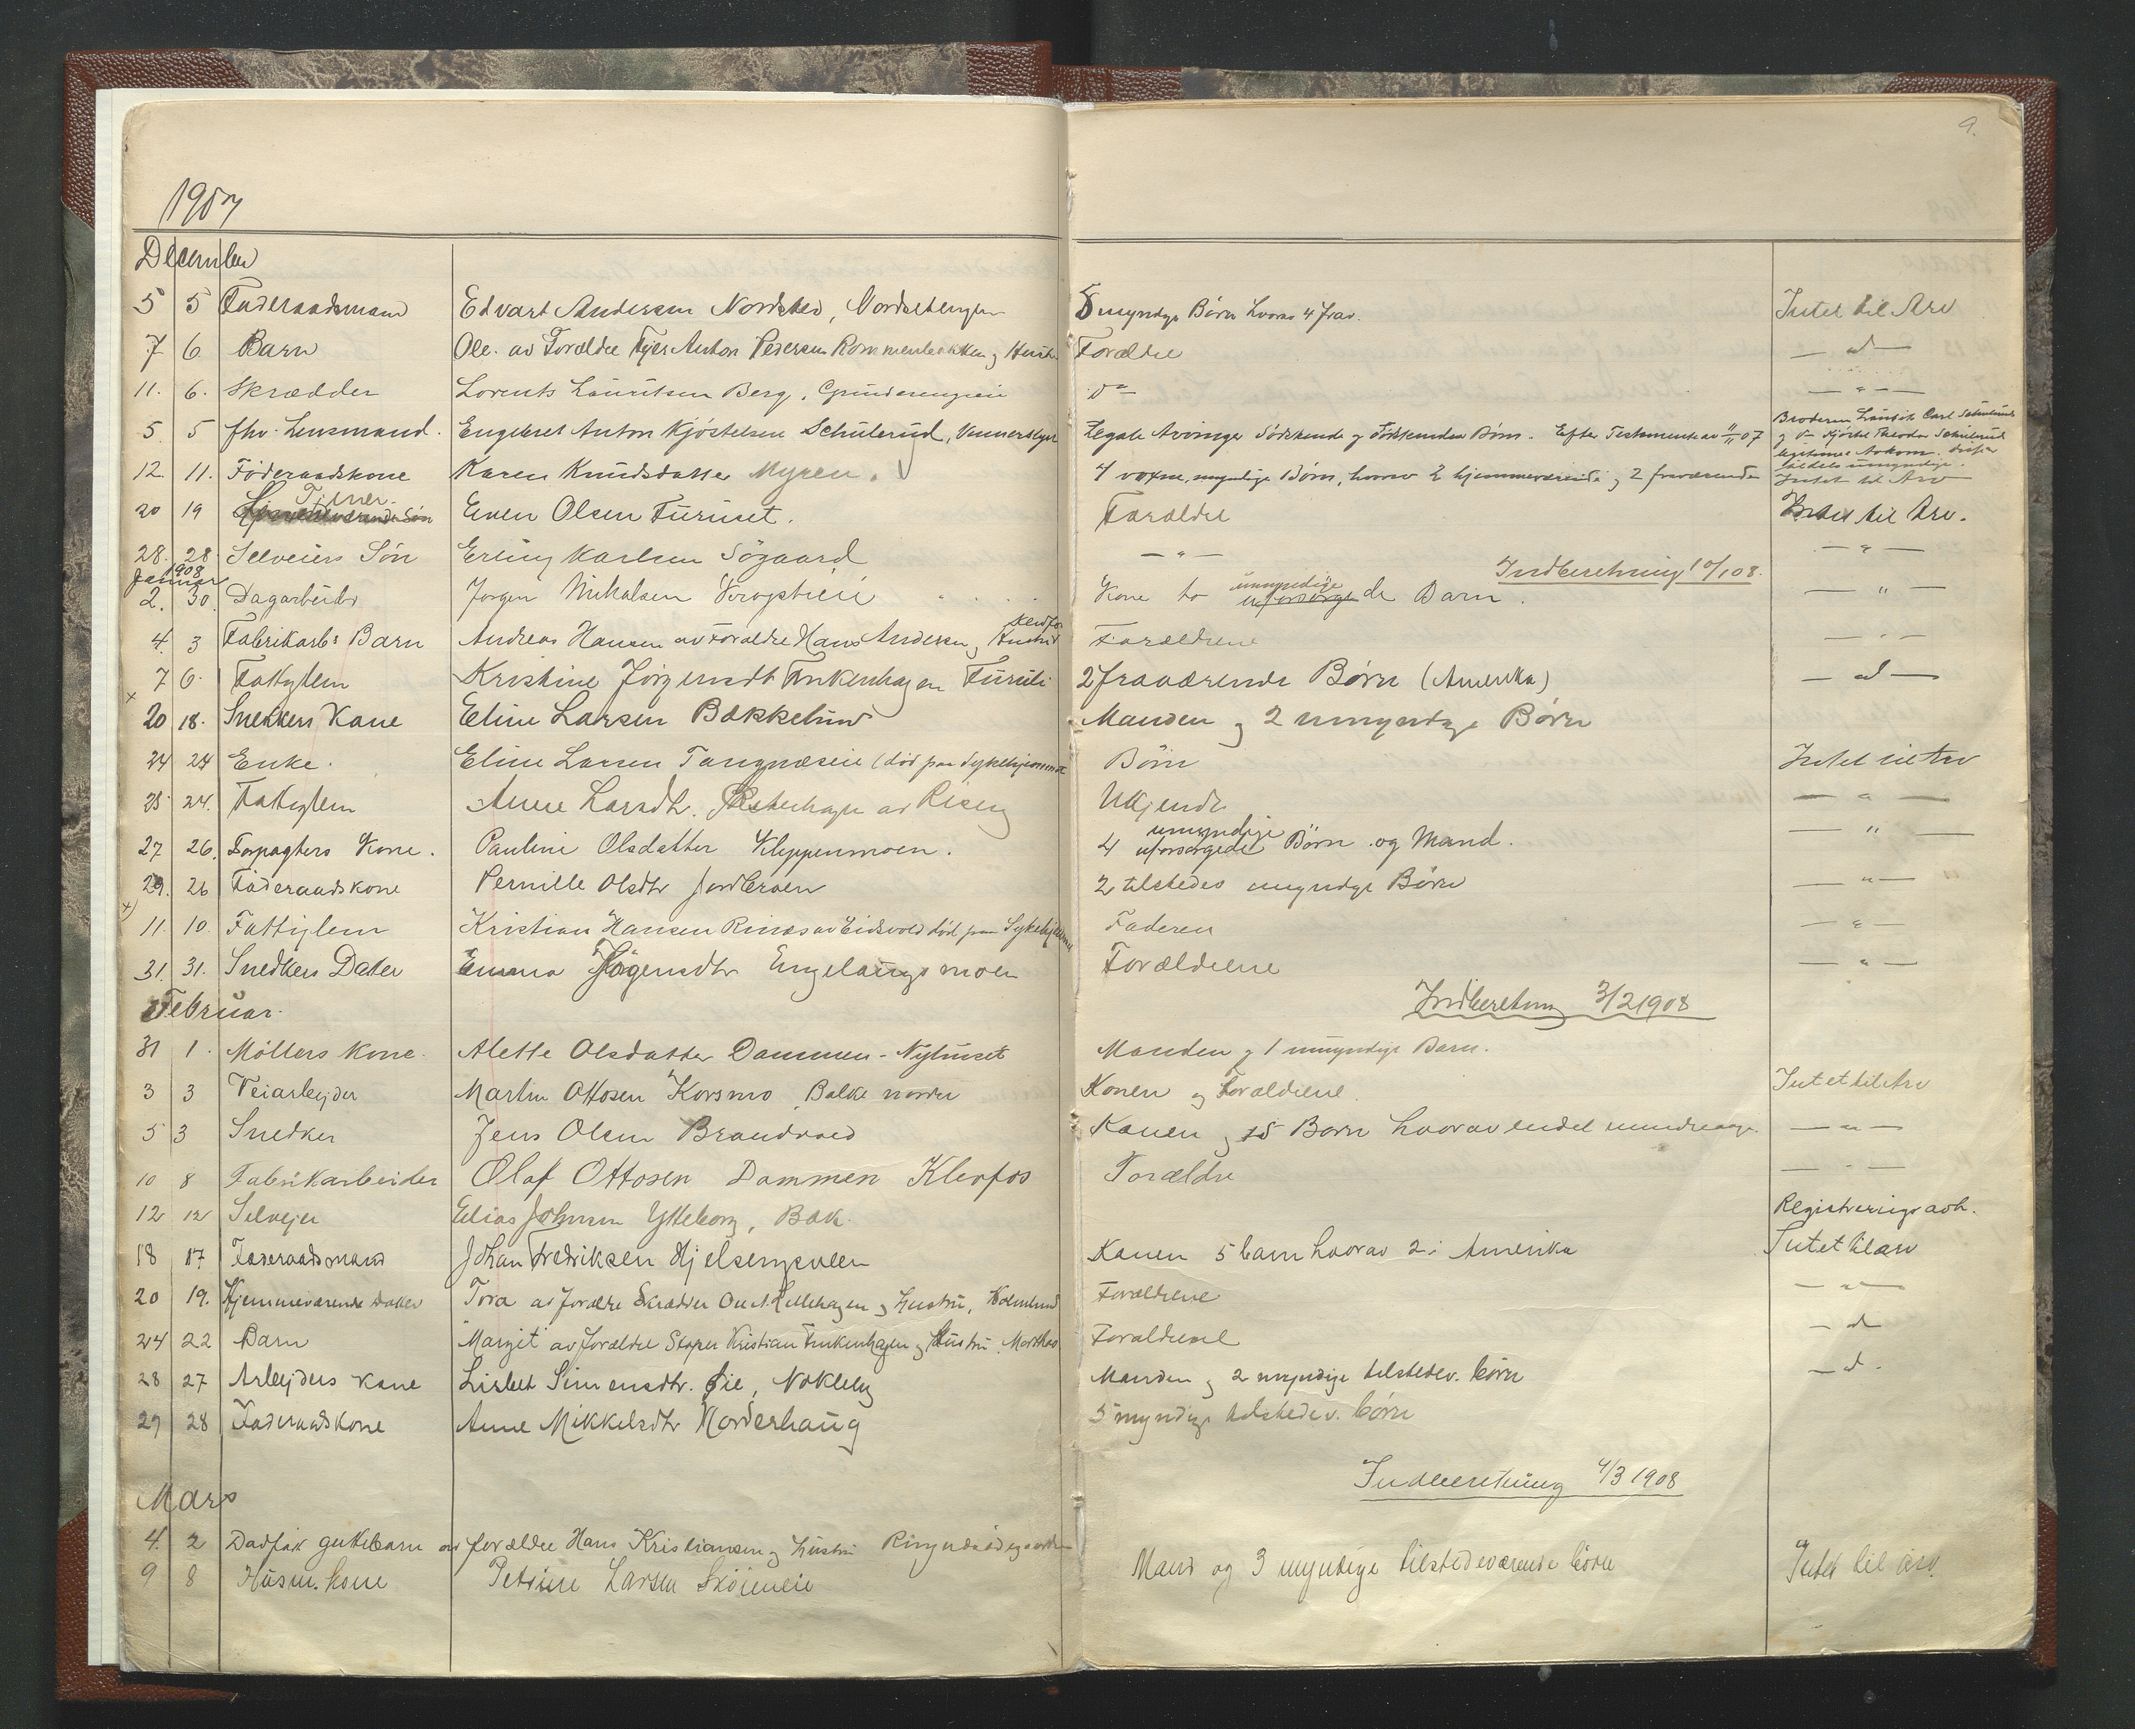 9.
1907
December
5 5 Føderaadsmand Edvart Andersen Nordsted, 5 myndige Børn hvorav 4 frav. Intet til Arv
7 6 Barn Ole av Forældre Anton Pedersen og Hustr Forældre — d —
11. 6. Skrædder Lorents Lauritsen Berg, do — " —
5 5 fhv. Lensmand. Engebret Anton Kjøstelsen Schulerud, Legale Arvinger Sødskende og Sødskendes Børn. Efter Testamente av 11/11 07 Broderen Carl Schulerud
og Theodor Schulerud
12. 11. Føderaadskone Karen Knudsdatter Myren. 4 voxne, myndige Børn, hvorav 2 hjemmeværende og 2 fraværende Intet til Arv
Tjener.
20 19 Hjemmeværende Søn Even Olsen Furuset. Forældre Intet til Arv.
28. 28. Selveiers Søn Erling Karlsen Søgaard — " — — " —
Indberetning 10/1 08.
1908
Januar
2. 30. Dagarbeider Jørgen Mikalsen Kone to umyndige uforsørgede Barn. — " —
4. 3 Fabrikarb.s Barn Andreas Hansen av Forældre Hans Andersen og Hustru Klevfos Forældrene — " —
7 6. Fattiglem Kristine Jørgensdt Finkenhagen Furuli 2 fraværende Børn (Amerika) — d —
x
20 18. Snekkers Kone Eline Larsen Bækkelund Manden og 2 umyndige Børn
24 24 Enke. Eline Larsen Tangnæseie (død paa Sykehjemmet Børn Intet til Arv
25 24. Fattiglem Anne Larsdt. av Ukjendt — " —
27 26. Forpagters Kone. Pauline Olsdatter Kleppenmoen. 4 umyndige uforsørgede Børn og Mand. — " —
29. 26 Føderaadskone Pernille Olsdtr Jordbroen 2 tilstedev myndige Børn — " —
x)
11. 10. Fattiglem Kristian Hansen Rinæs av Eidsvold død paa Sykehjemme Faderen — " —
31. 31. Snedkers Dater Emma Jørgensdtr Engelaugsmoen Forældrene — " —
Indberetning 3/2 1908
Februar.
31 1. Møllers Kone. Alette Olsdatter Dammen - Nyhuset Manden og 1 umyndige Barn.
3 3 Veiarbeider Martin Ottosen Korsmo, Balke nordre Konen og Forældrene. Intet til Arv
5 3 Snedker Jens Olsen Brandvold Konen og 15 Børn hvorav endel mindreaar. — " —
10 8 Fabrikarbeider Olaf Ottosen Dammen Klevfos Forældre — " —
12 12 Selveier Elias Johnsen Ytteborg, Bak. Registreringsavh.
18 17 Føderaadsmand Johan Fredriksen Hjelsengsveen Konen 5 barn hvorav 2 i Amerika Intet til arv
20 19. Hjemmeværende Datter Tora av forældre Skrædder Ole A. Lillehagen og hustru, Holmlund Forældrene — " —
24 22 Barn "Margit" av forældre Støper Kristian Finkenhagen og Hustru. Forældrene — d
28 27 Arbeiders Kone Lisbet Simensdtr. Øie, Nøkleby Manden og 2 myndige tilstedev. børn — d.
29 28 Føderaadskone Anne Mikkelsdtr Norderhaug 5 myndige tilstedev. børn
Indberetning 4/3 1908
Mars
4. 2 Dødfødt guttebarn av forældre Hans Kristiansen og hustru
9 8 Husm. kone Petrine Larsen Skjømeie Mand og 3 myndige tilstedeværende børn Intet til arv.